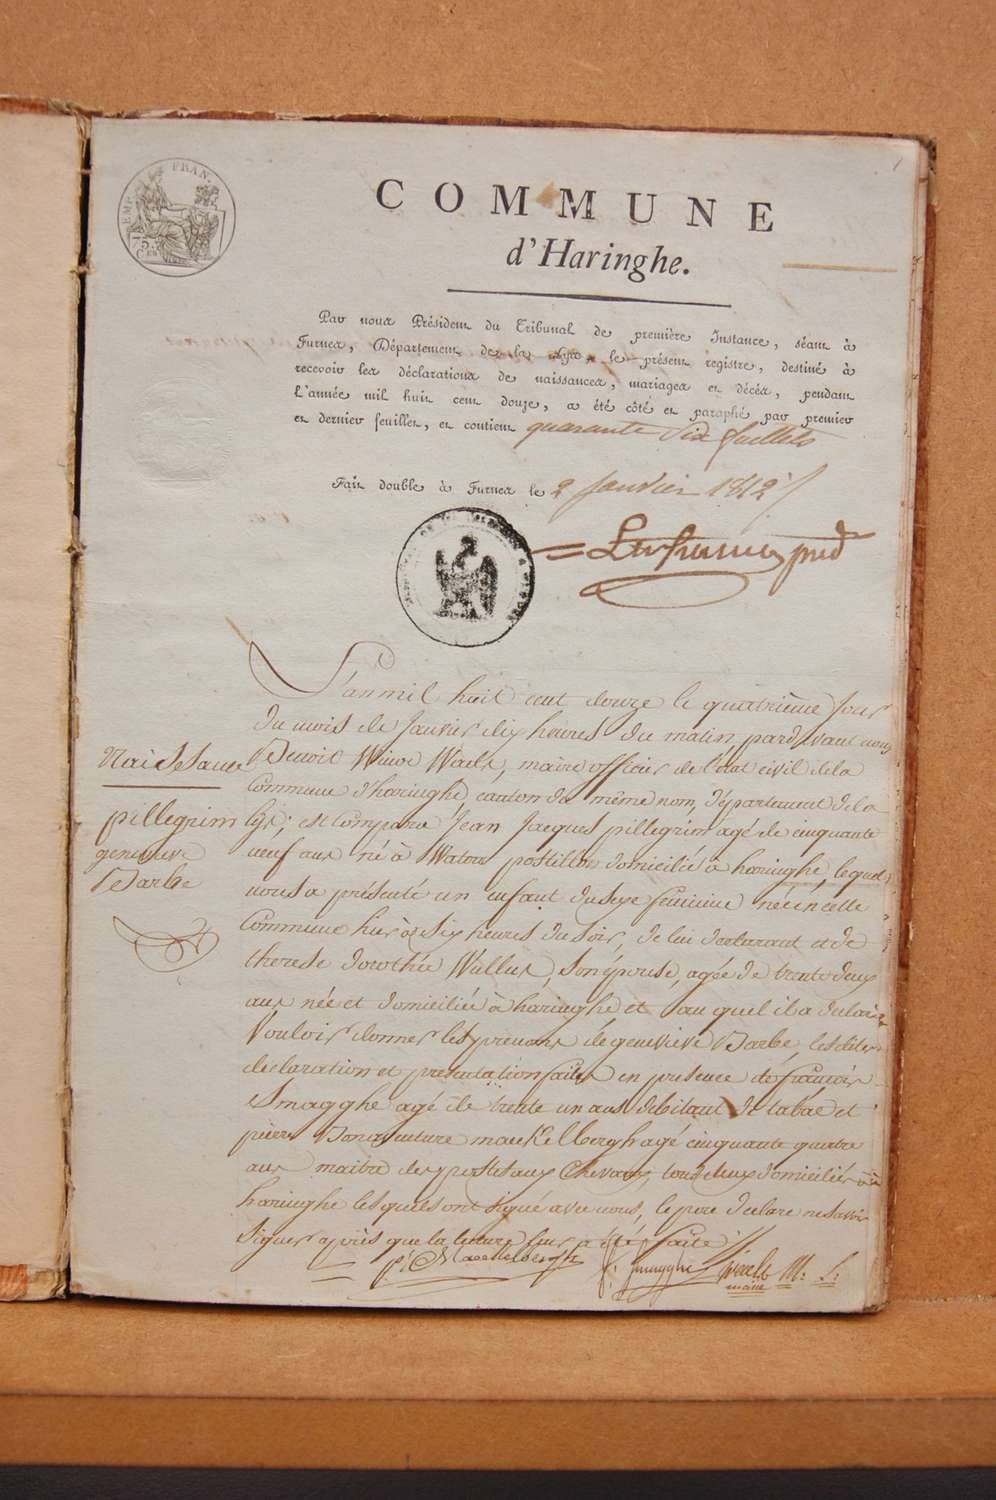 EMP. FRAN.
75
CEN
COMMUNE
d'Haringhe.
Par nous Président du Tribunal de première Instance, séant à
Furnes, Département de la Lys, le présent registre, destiné à
recevoir les déclarations de naissances, mariages et décès, pendant
l'année mil huit cent douze, a été côté et paraphé par premier
et dernier feuillet, et contient quarante Six fuellets
Fait double à Furnes le 2 Janvier 1812
L'an mil huit cent douze le quatrième Jour
du mois de Janvier dix heures du matin pardevant nous
Benoit Winoc Waels, maire officier de l'état civil de la
Commune d'haringhe, canton du même nom, département de la
lijs; est comparu Jean Jacques pillegrim agé de cinquante
neuf ans né à Watou postillon domicilié à haringhe, lequel
nous a présenté un enfant du sexe feminine née en cette
Commune hier à Six heures du soir, de lui declarant et de
therese dorothée Wullus, Son épouse, agée de trente deux
ans née et domiciliée à haringhe et au quel il a declaré
Vouloir donner les prenoms de genevieve Barbe, les dites
declaration et presentation faites en presence de françois
Smagghe agé de trente un ans debitant de tabac et
pierre Bonaventure maeckelbergh agé cinquante quatre
ans maitre des postes aux chevaux, tous deux domiciliés à
haringhe lesquels ont signé avec nous, le pere declare ne savoir
Signer après que la lecture leur a été faite
Naissance
pillegrim
genevieve
Barbe
p: Maeckelbergh
f: Smagghe
maire